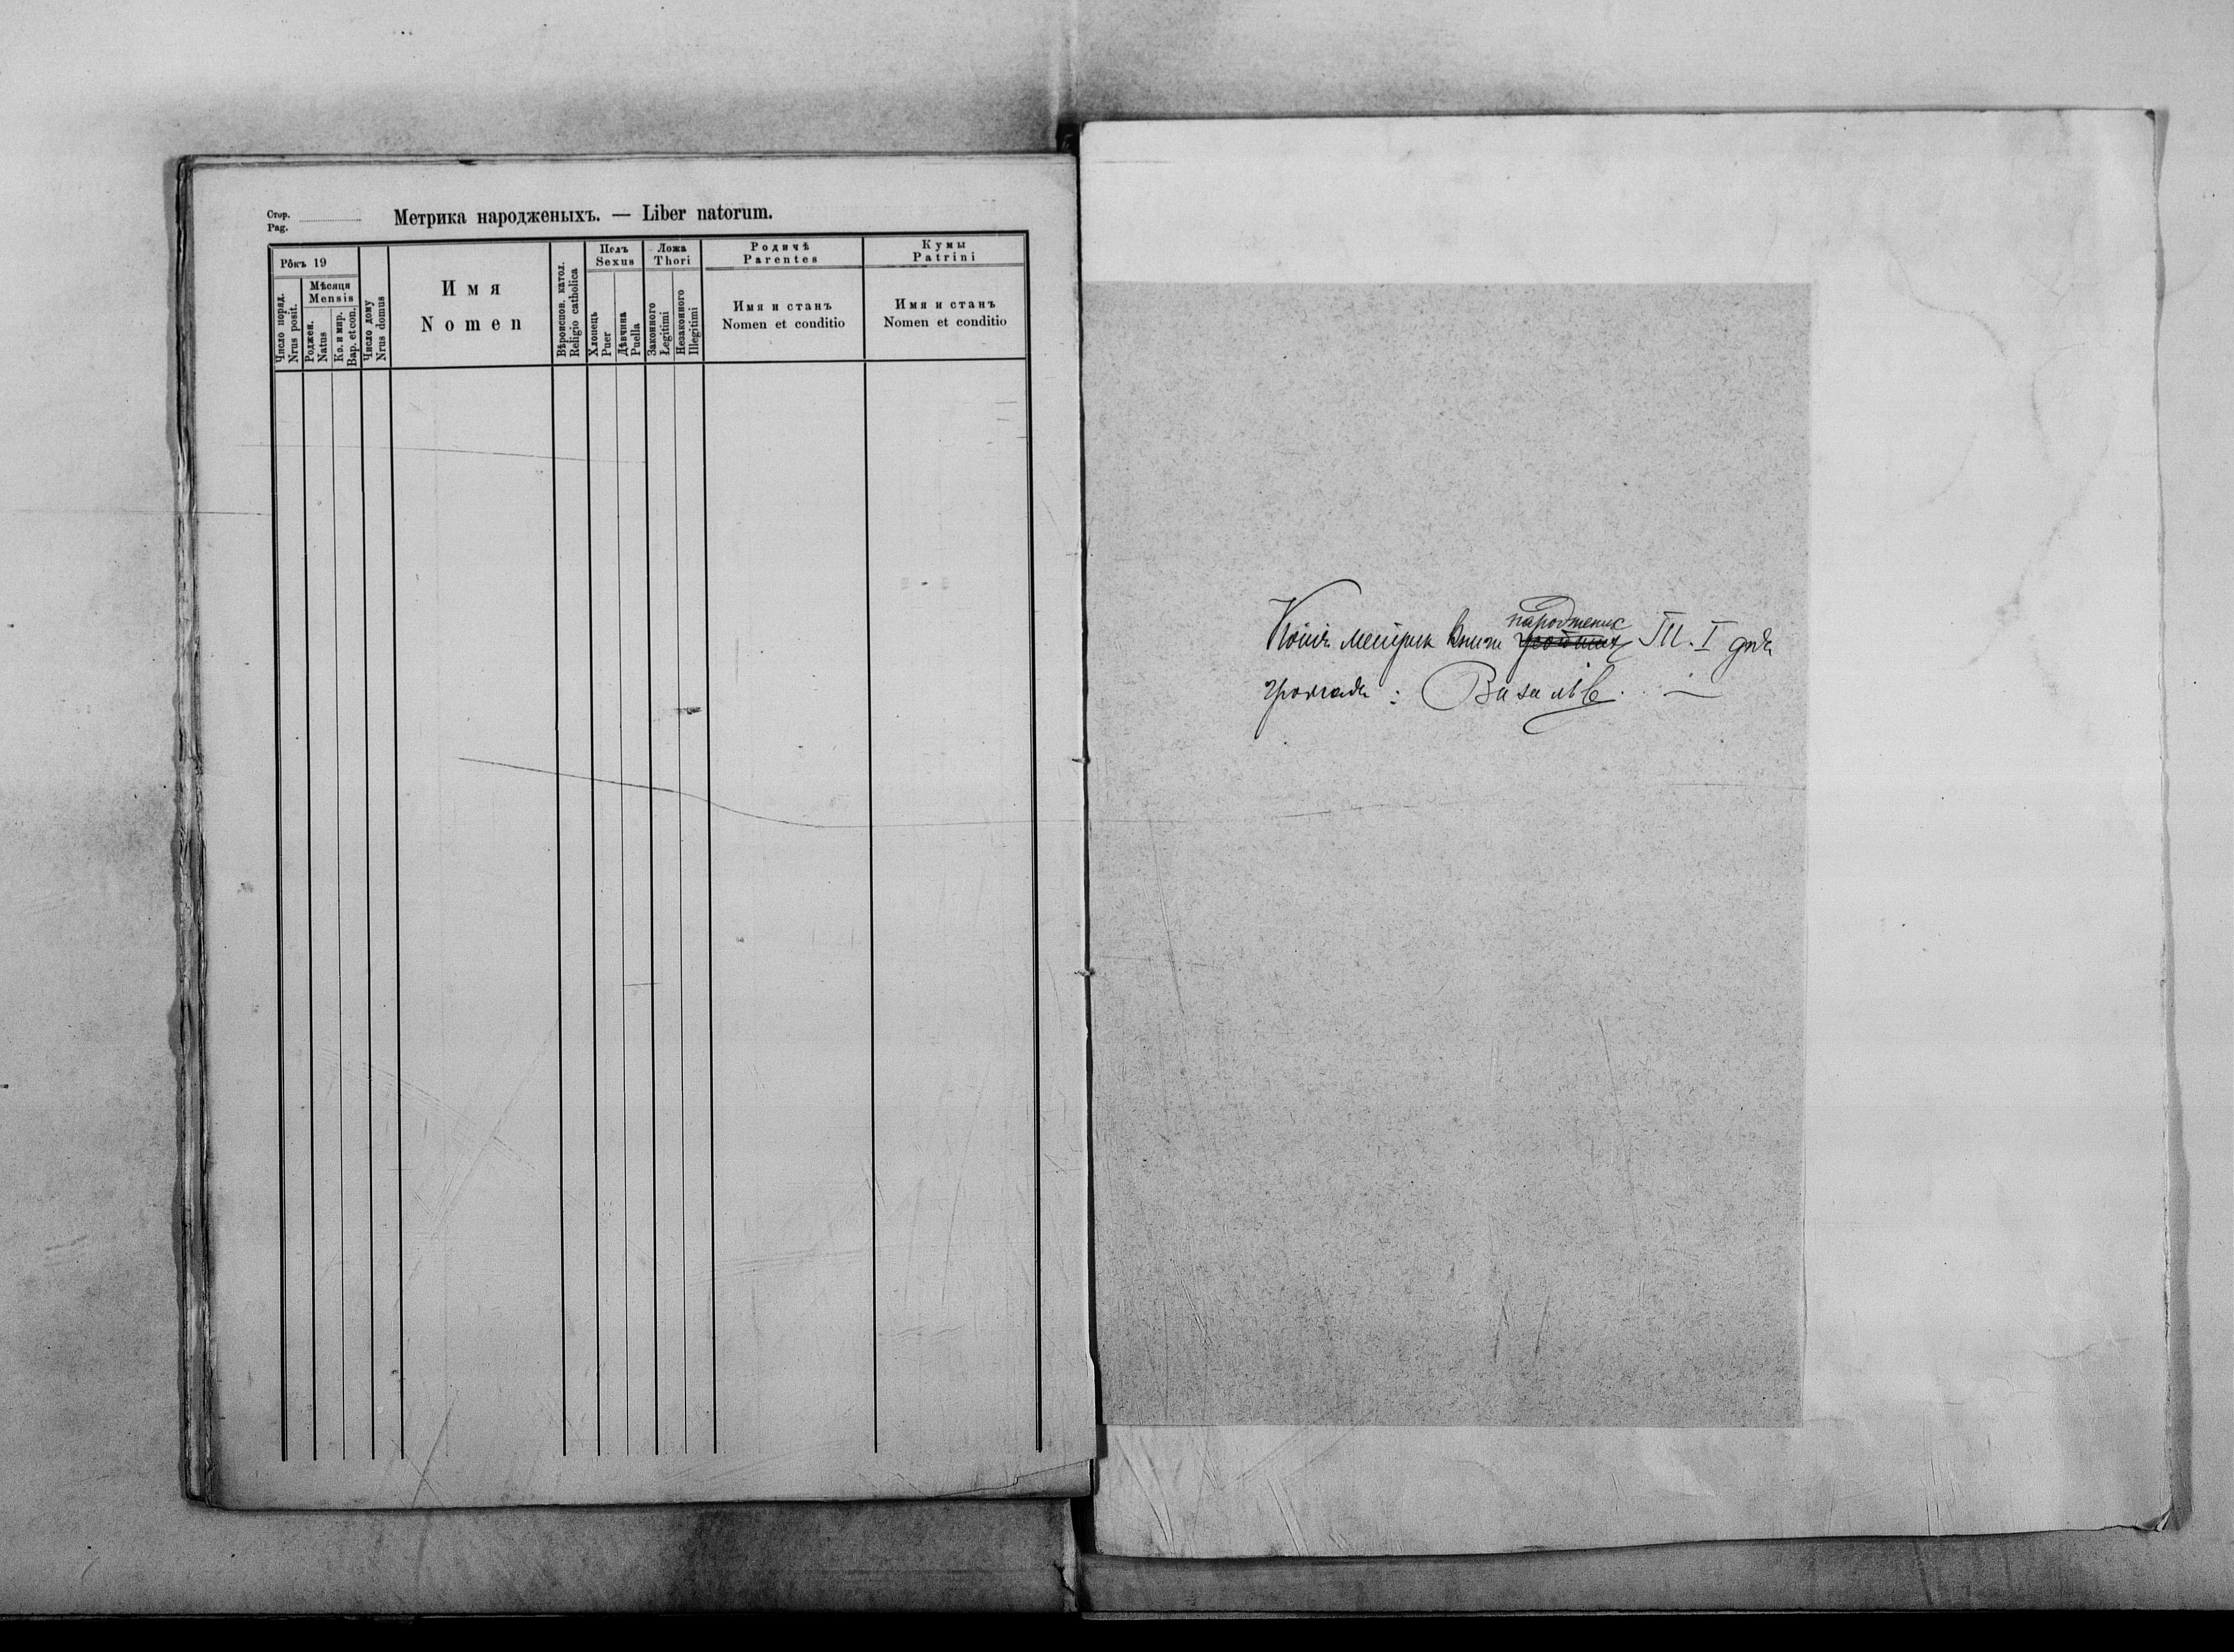 Стор.
Pag.
Метрика народженыхъ. — Liber natorum.
Рôкъ 19
Число поряд.
Nrus posit.
Мѣсяця
Mensis
Роджен.
Natus
Кр. и мир.
Bap. et con.
Число дому
Nrus domus
Имя
Nomen
Вѣроисповѣд. катол.
Religio catholica
Полъ
Sexus
Хлопець
Puer
Дѣвчина
Puella
Ложа
Thori
Законного
Legitimi
Незаконного
Illegitimi
Родичѣ
Parentes
Имя и станъ
Nomen et conditio
Кумы
Patrini
Имя и станъ
Nomen et conditio
народжених
Копія метрик книги Т. I для
громади :